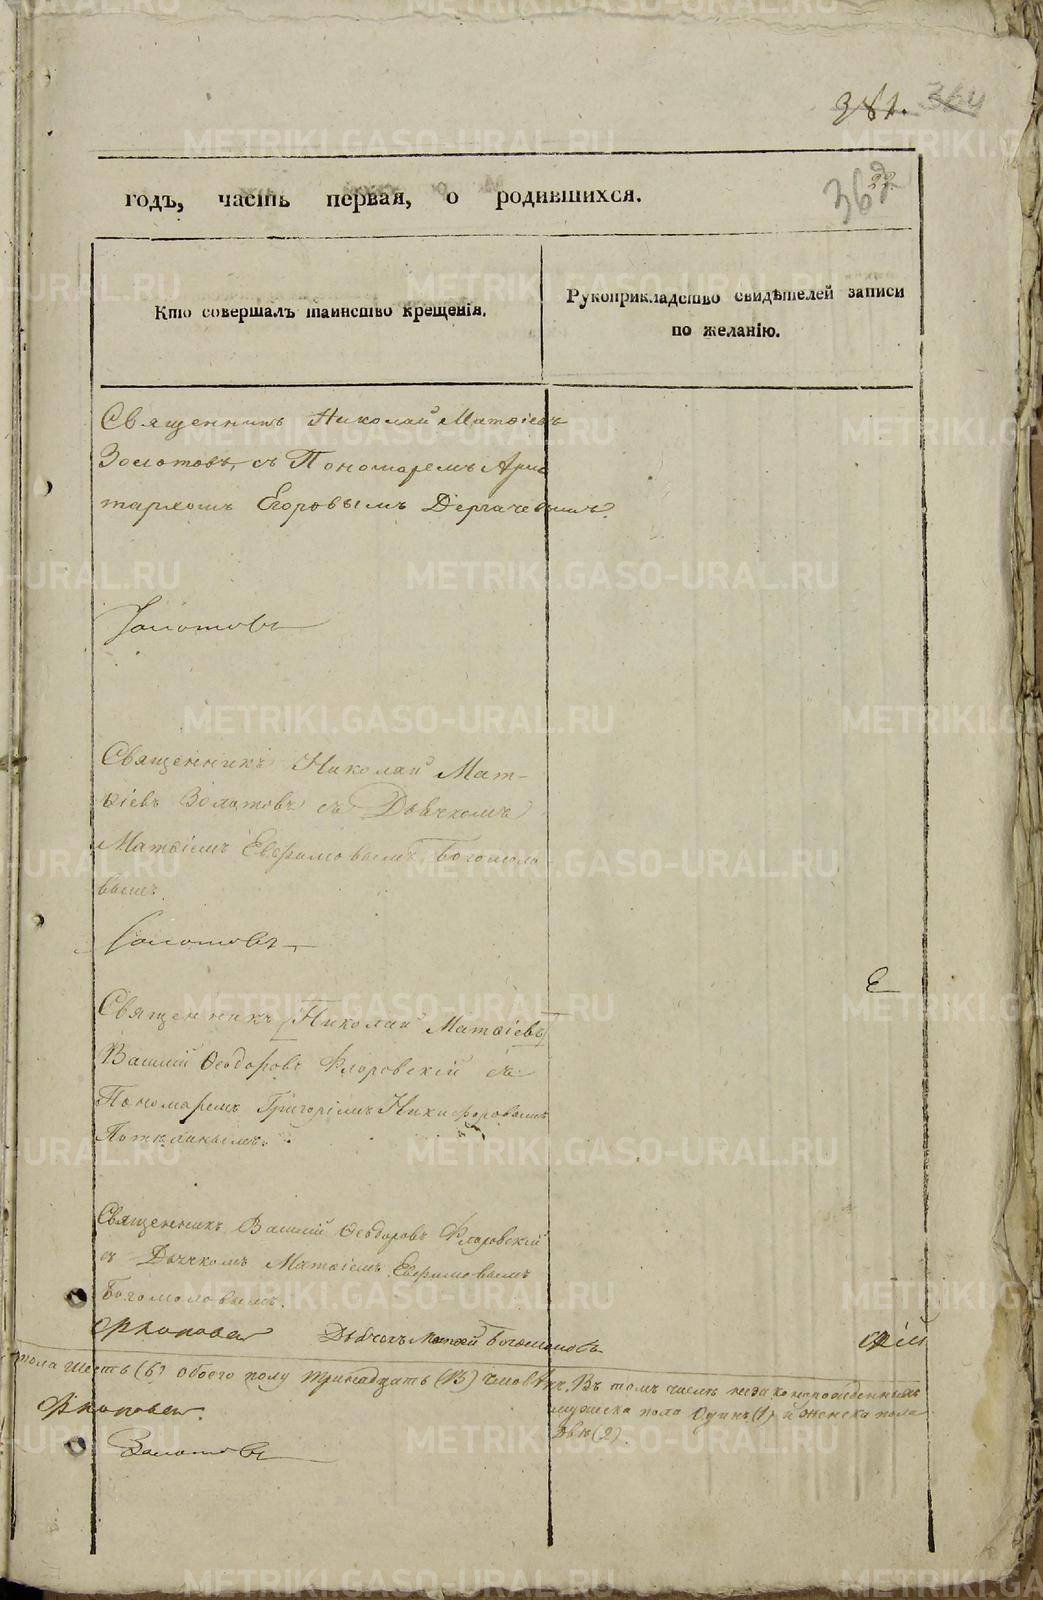 381. 364
36
годъ, часть первая, о родившихся.
Кто совершалъ таинство крещенія.
Рукоприкладство свидѣтелей записи
по желанію.
Священникъ Николай Матѳіевъ
Золотовъ, съ Пономаремъ Арис
тархомъ Егоровымъ Дергачевымъ.
Золотовъ
Священникъ Николай Мат-
ѳіевъ Золотовъ съ Дьячкомъ
Матѳіемъ Евфимовымъ Богомоло
вымъ.
Золотовъ
Священникъ Николай Матѳіевъ
Василій Ѳеодоровъ Флоровскій съ
Пономаремъ Григоріемъ Никифоровымъ
Священникъ Василій Ѳеодоровъ Флоровскій
съ Дьячкомъ Матѳіемъ Евфимовымъ
Богомоловымъ.
Дьячекъ Матѳей Богомоловъ
пола шесть (6) обоего полу тринадцать (13) человѣкъ. Въ томъ числѣ незаконнорожденныхъ
мужеска пола Одинъ (1) и женска пола
двѣ (2)
Золотовъ
METRIKI.GASO-URAL.RU